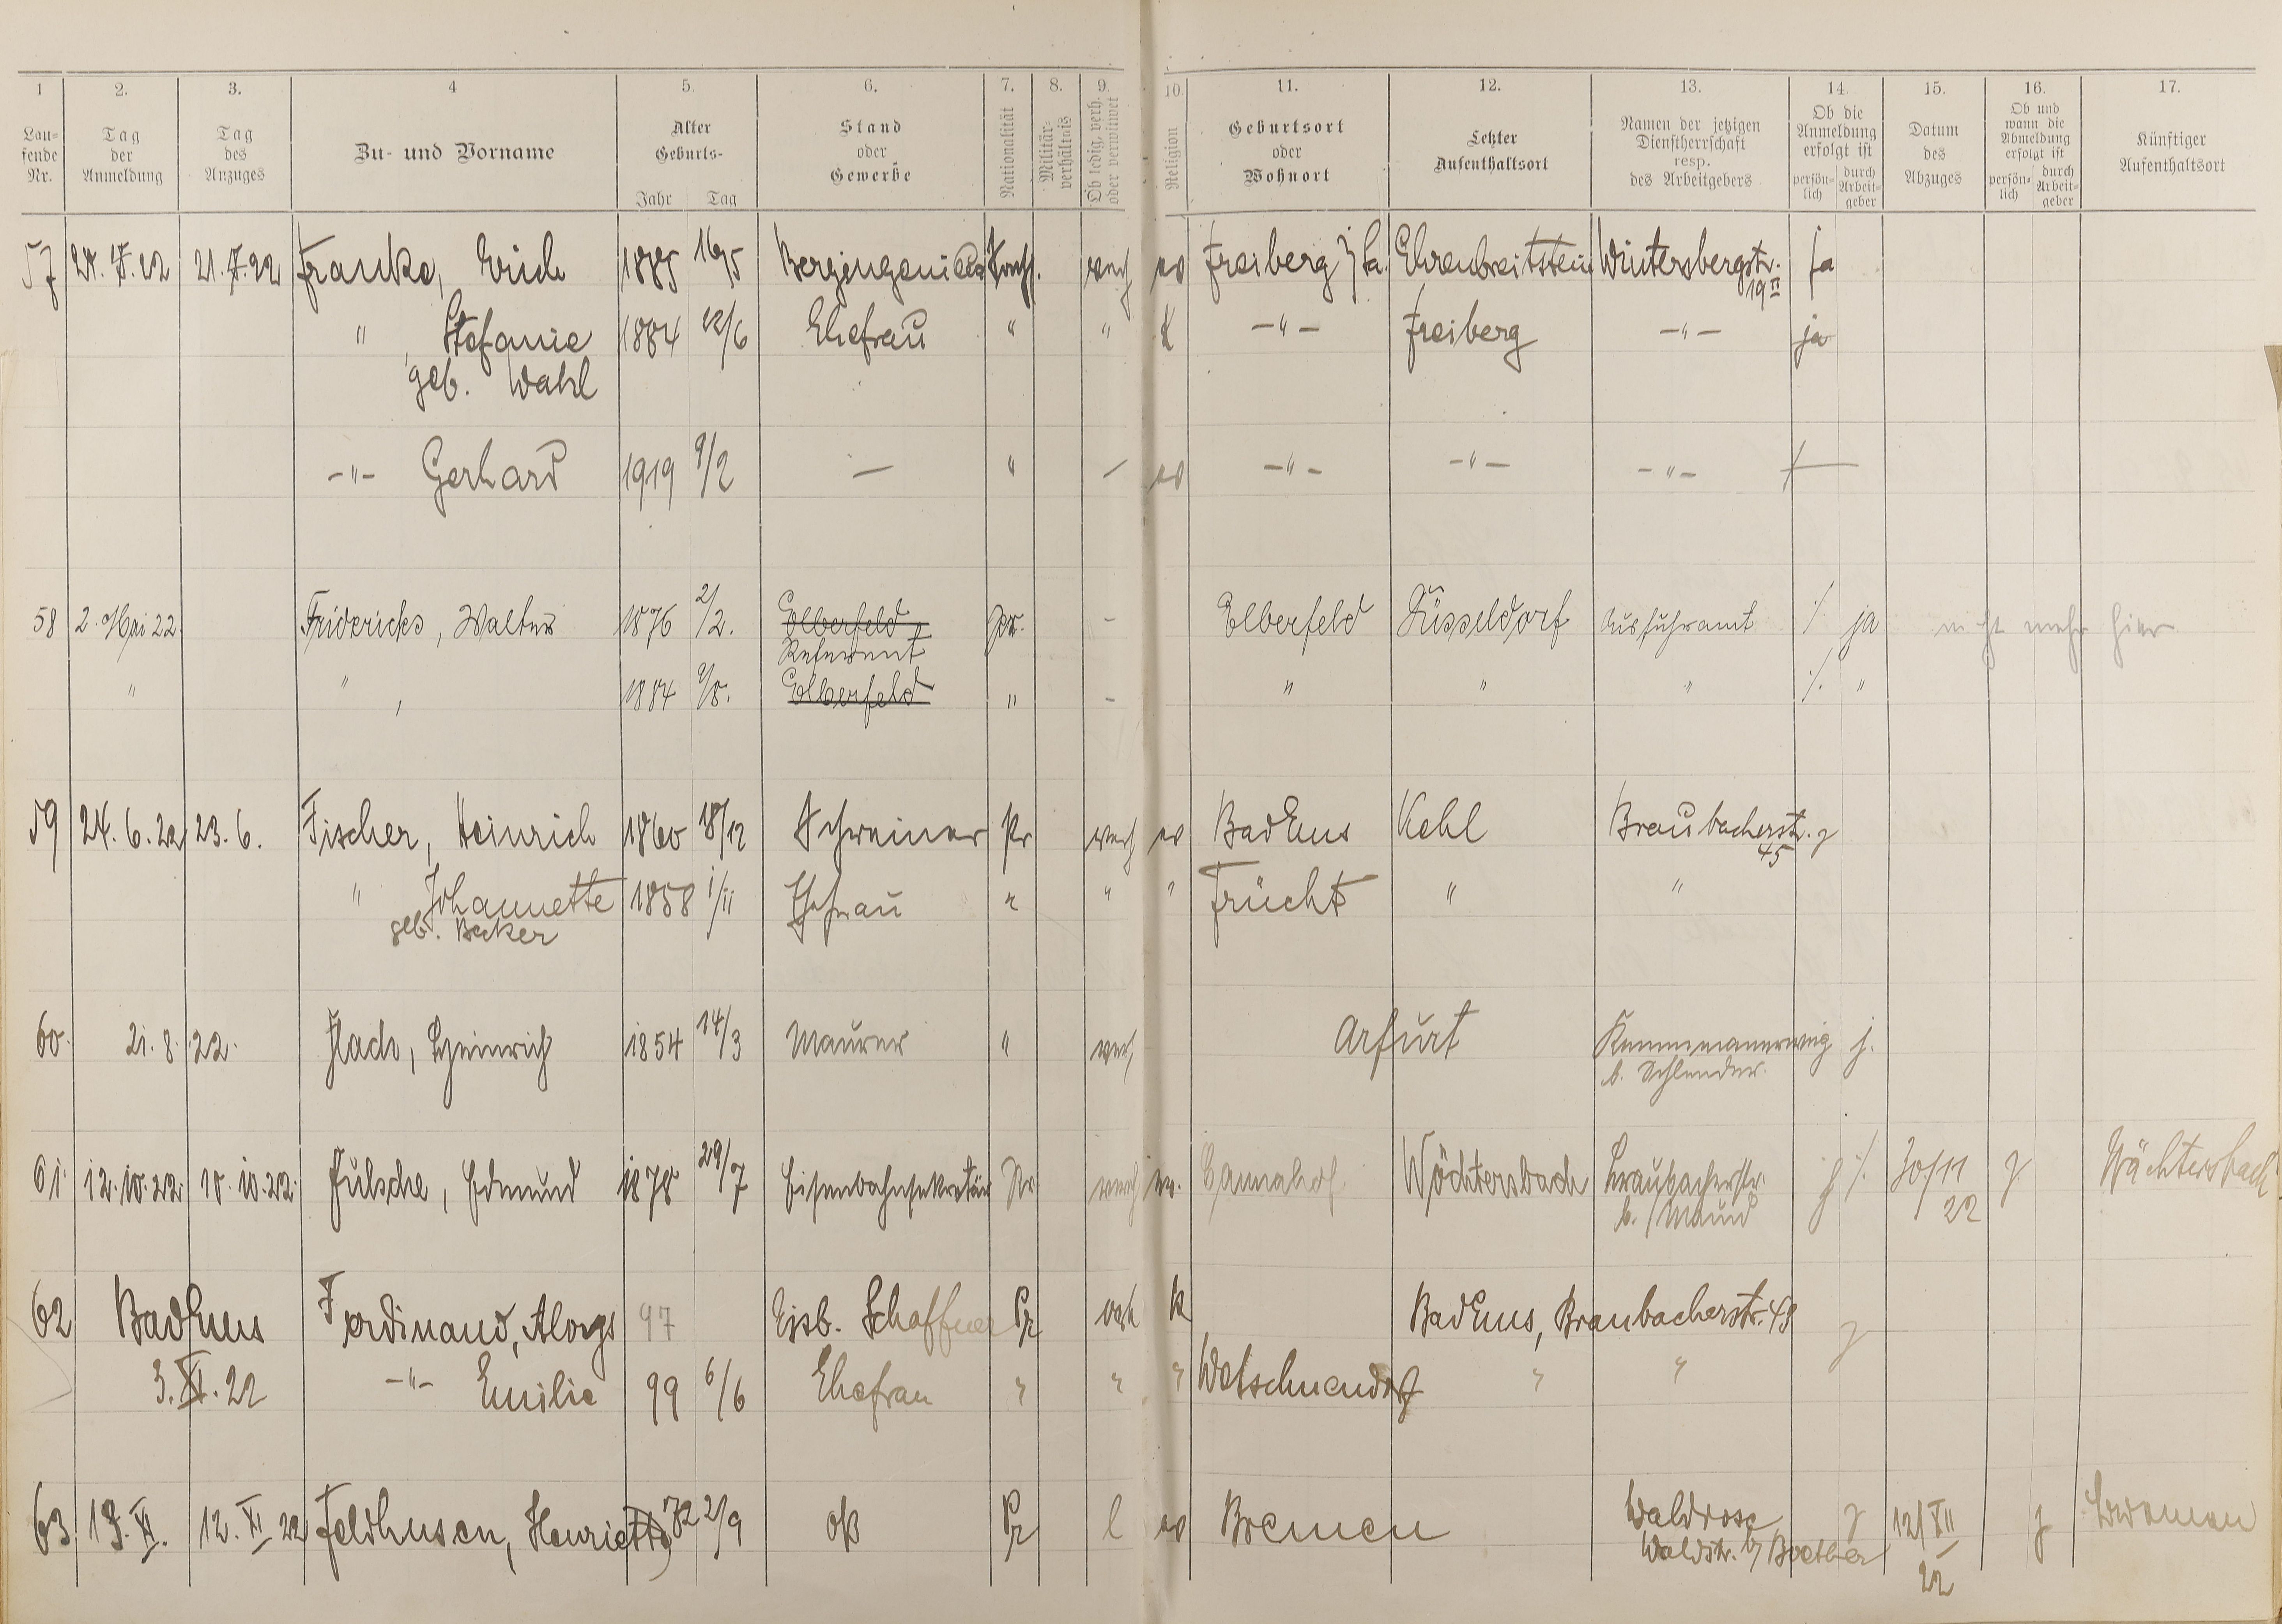 1 2. 3. 4 5. 6. 7. 8. 9. 10. 11. 12. 13. 14. 15. 16. 17.
Lau-
fende
Nr.
Tag
der
Anmeldung
Tag
des
Anzuges
Zu- und Vorname
Alter
Geburts-
Jahr Tag
Stand
oder
Gewerbe
Nationalität
Militär-
verhältnis
Ob ledig, verh.
oder verwitwet
Religion
Geburtsort
oder
Wohnort
Letzter
Aufenthaltsort
Namen der jetzigen
Dienstherrschaft
resp.
des Arbeitgebers
Ob die
Anmeldung
erfolgt ist
persön-
lich
durch
Arbeit-
geber
Datum
des
Abzuges
Ob und
wann die
Abmeldung
erfolgt ist
persön-
lich
durch
Arbeit-
geber
Künftiger
Aufenthaltsort
57 24. 7. 22 21. 7. 22 Franke, Erich 1885 16/5 Bergingenieur verh ev Freiberg i/Sa. Ehrenbreitstein Wintersbergstr. ja
19 II
" Stefanie 1884 22/6 Ehefrau " " K -"- Freiberg -"- ja
geb. Wahl
-"- Gerhard 1919 9/2 — " — ev -"- -"- -"-
58 2. Mai 22. Fridericks, Walter 1876 2/2. Elberfeld pr. - Elberfeld Düsseldorf Ausfuhramt ./. ja nicht mehr hier
Referent
" " , 1884 9/8. Elberfeld " - " " " ./. "
59 24. 6. 22 23. 6. Fischer, Heinrich 1860 18/12 Schreiner Pr verh ev Bad Ems Kehl Braubacherstr. j
45
" Johannette 1858 1/11 Ehefrau " " " Frücht " "
geb. Becker
60. 21. 8. 22. Flach, Heinrich 1854 14/3 Maurer " verh Arfurt Kemmenauerweg j.
b. Schlender.
61. 12. 10. 22. 10. 10. 22. Fülsche, Edmund 1878 29/7 Eisenbahnsekretär Pr verh ev. Wächtersbach Braubacherstr. j ./. 30/11 j Wächtersbach
22
62 Bad Ems Ferdinand, Aloys 97 Eisb. Schaffner Pr verh k Bad Ems, Braubacherstr. 49 j
3. XI. 22 -"- Emilie 99 6/6 Ehefrau " " " Welschneudorf " "
63 13. XI. 12. XI 22 Feldhusen, Henriette 72 2/9 oB Pr l ev Bremen Waldrose j 12/XII j Bremen
Waldstr. b/ Boether 22